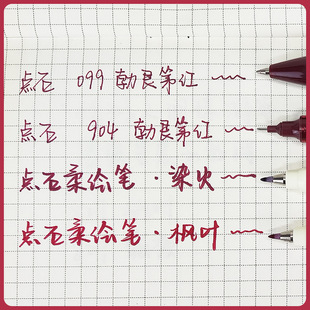 点石 099 勃艮第红
点石 904 勃艮第红
点石柔绘笔·染火
点石柔绘笔·枫叶